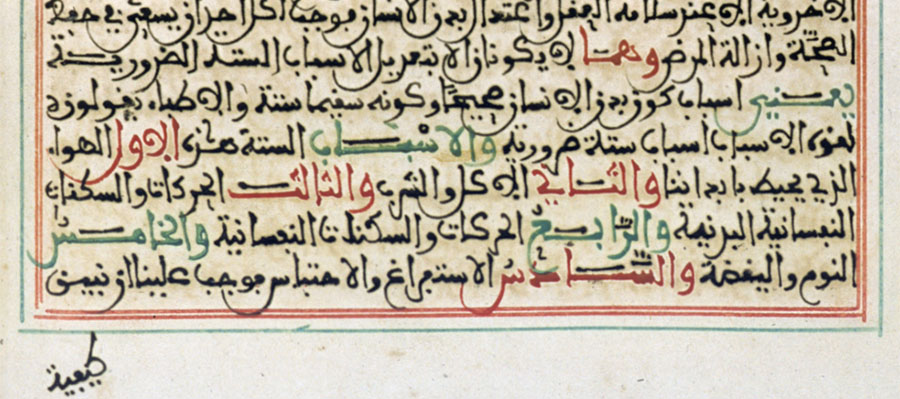 الاخروية الا عند سلامة العقل واعتدال بدن الانسان فوجب لكل احد ان يسعى في حفظ
الصحة وازالة المرض وهما لا يكونان الا بتعديل الاسباب الستة الضرورية
يعني اسباب كون بدن الانسان صحيحا وكونه سقيما ستة والاطباء يقولون
لهذه الاسباب اسباب ستة ضرورية والاسباب الستة هذه الاول الهواء
الذي يحيط بابداننا والثاني الاكل والشرب والثالث الحركات والسكنات
النفسانية البدنية والرابع الحركات والسكنات النفسانية والخامس
النوم واليقظة والسادس الاستفراغ والاحتباس فوجب علينا ان نبين
كيفية